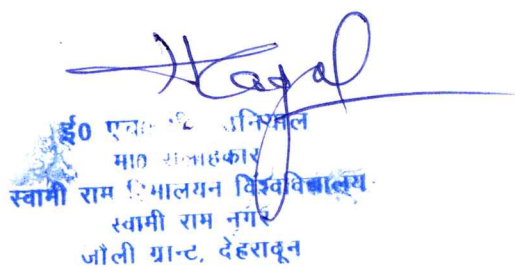 ई0 एच0
मा0 सलाहकार
स्वामी राम हिमालयन विश्वविद्यालय
स्वामी राम नगर
जौली ग्रान्ट, देहरादून